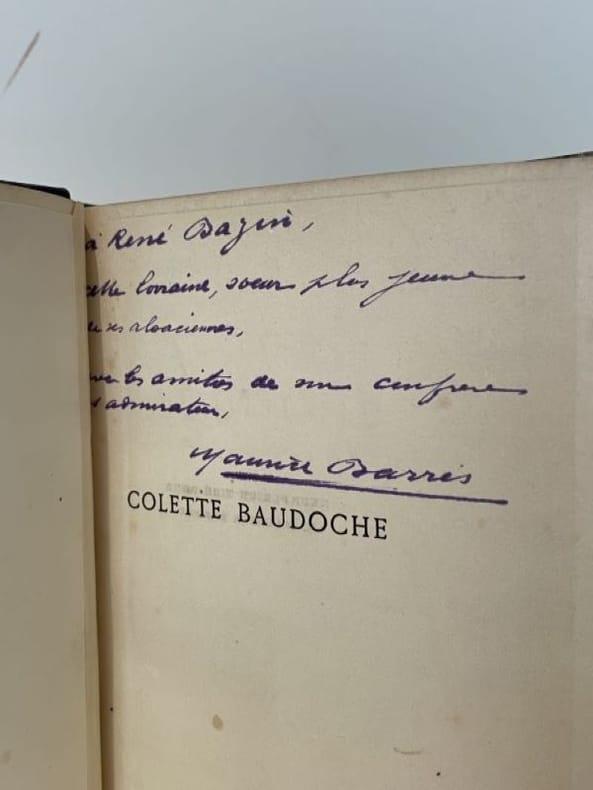 à René Bazin,
cette lorraine, soeur plus jeune
de ses alsaciennes,
avec les amitiés de son confrère
admirateur,
Maurice Barrès
COLETTE BAUDOCHE